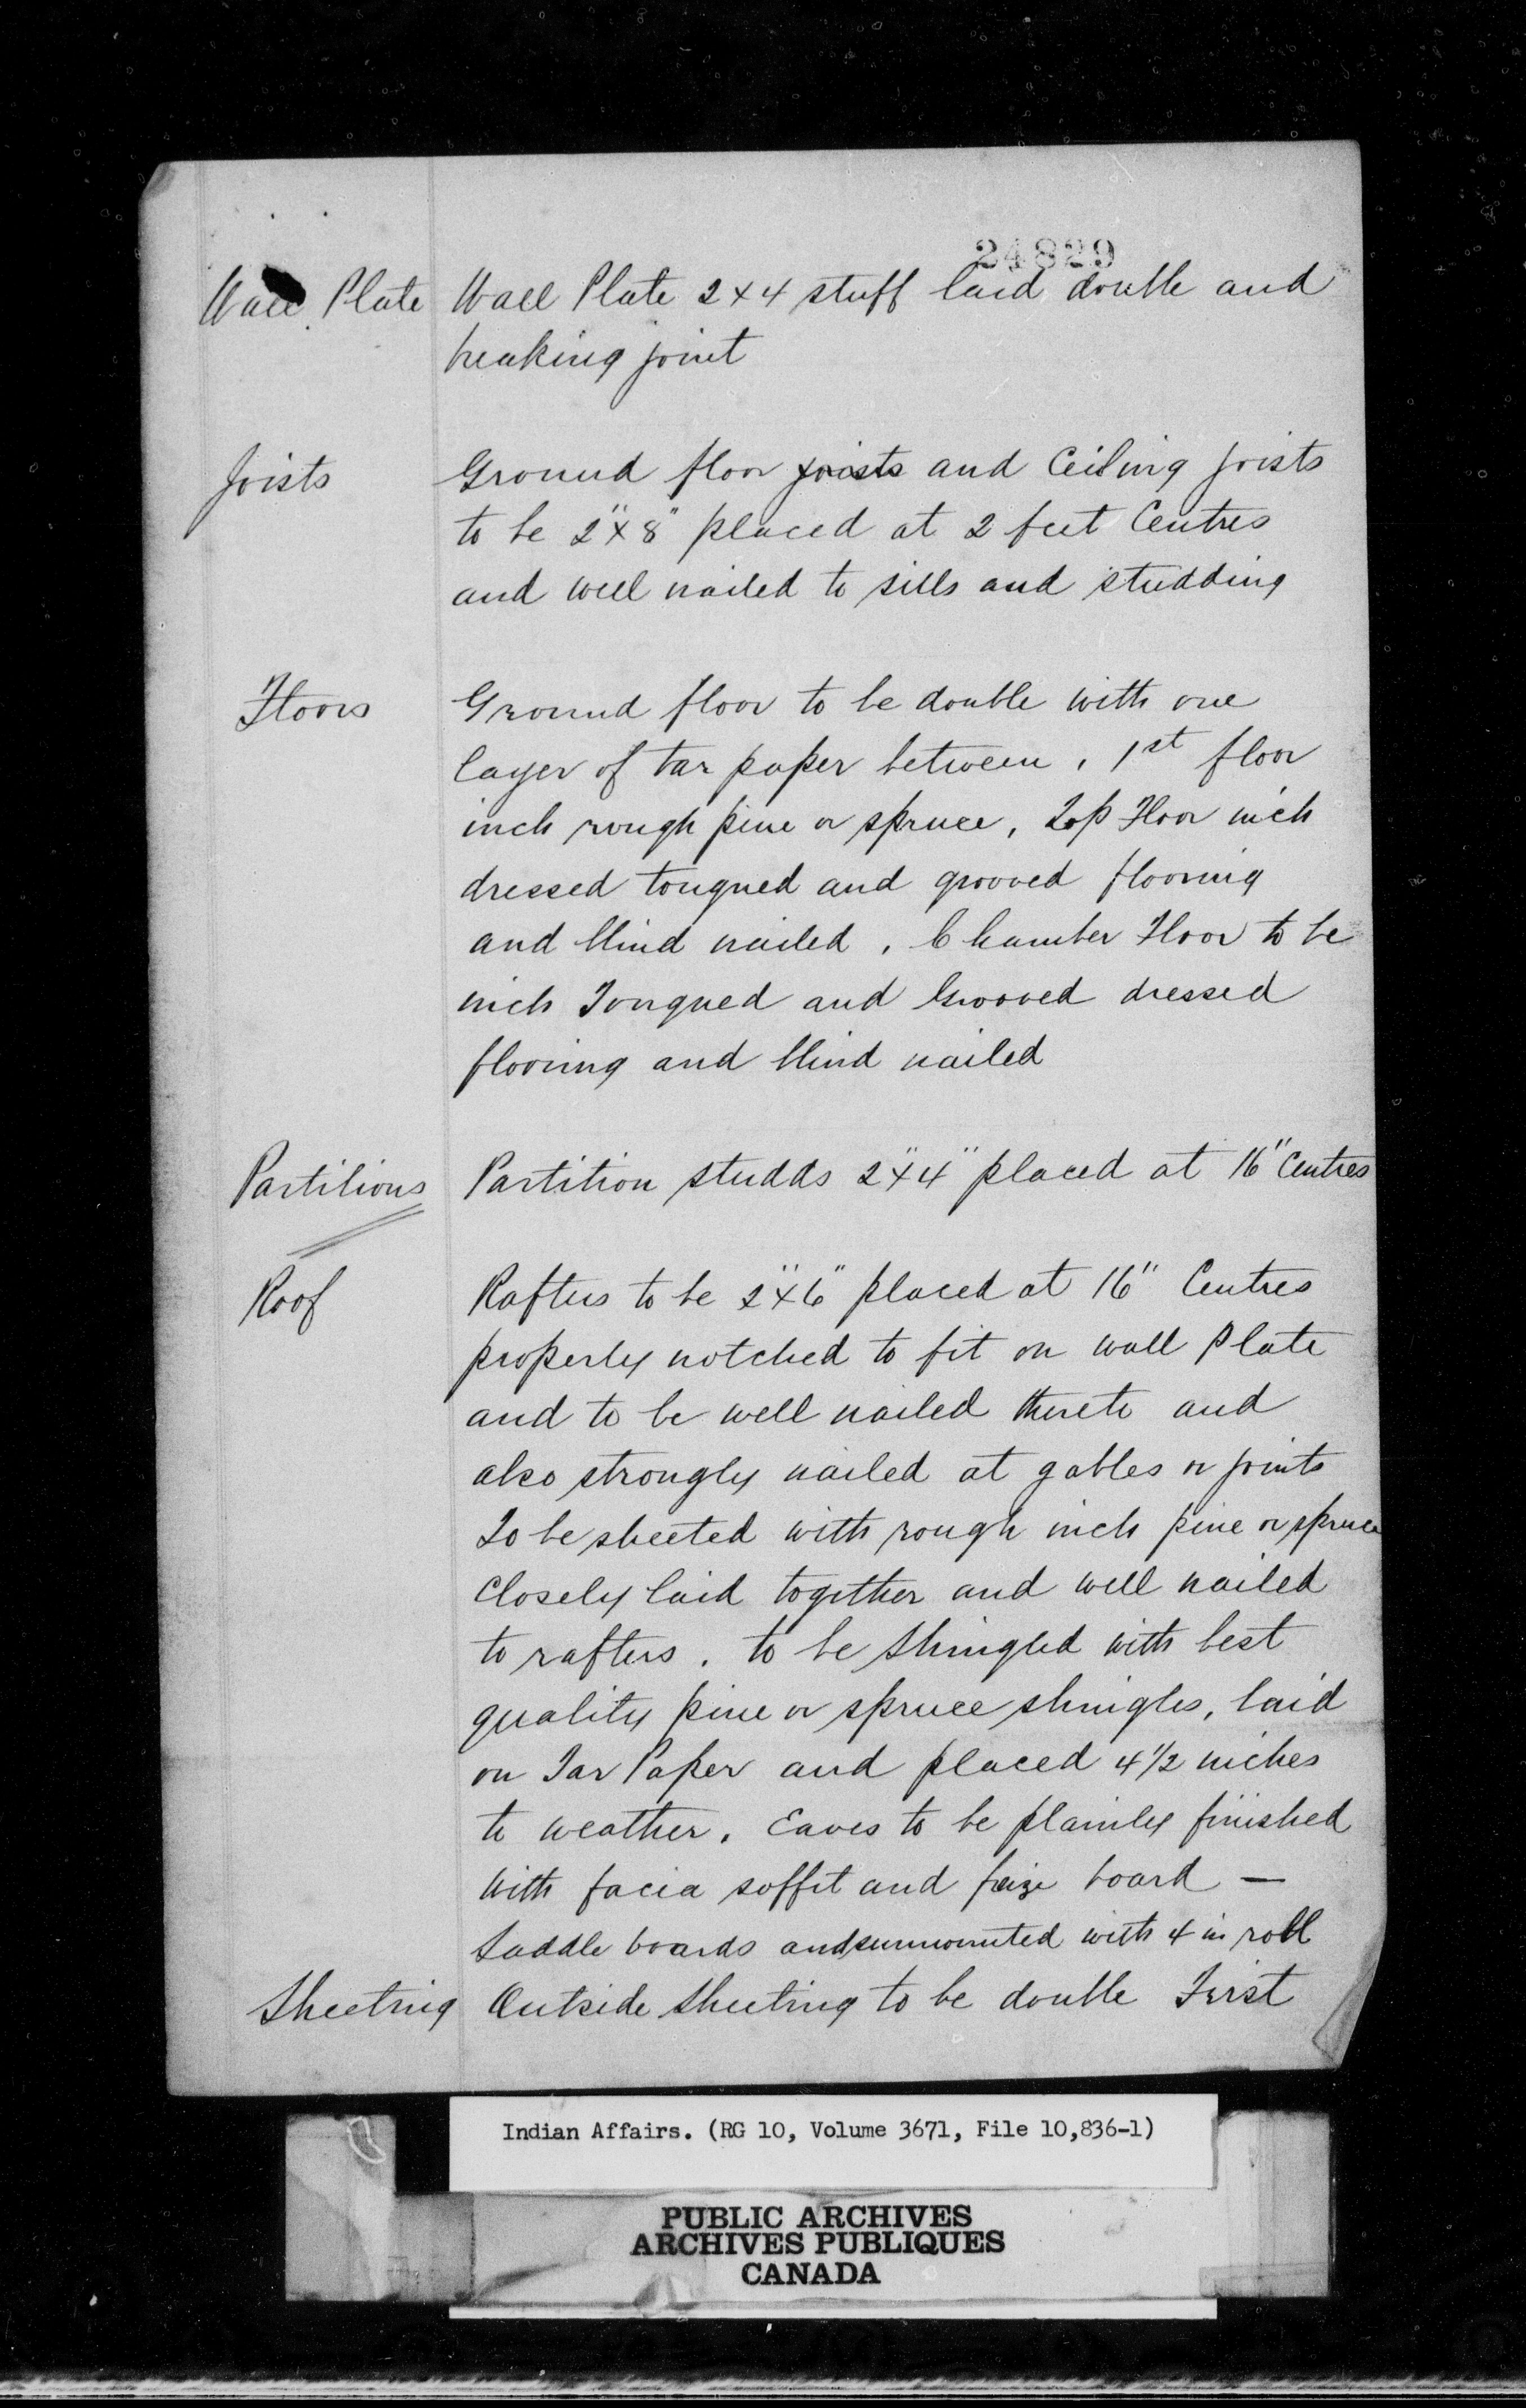 24829
Wall Plate Wall Plate 2 x 4 stuff laid double and
breaking joint
Joists Ground floor joists and Ceiling joists
to be 2" x 8" placed at 2 feet Centres
and well nailed to sills and studding
Floors Ground floor to be double with one
layer of tar paper between, 1st floor
inch rough pine or spruce, Top Floor inch
dressed tongued and grooved flooring
and blind nailed, Chamber Floor to be
inch Tongued and Grooved dressed
flooring and blind nailed
Partitions Partition studds 2" x 4" placed at 16" Centres
Roof Rafters to be 2" x 6" placed at 16" Centres
properly notched to fit on wall Plate
and to be well nailed thereto and
also strongly nailed at gables or joints
To be sheeted with rough inch pine or spruce
Closely laid together and well nailed
to rafters. to be Shingled with best
quality pine or spruce shingles, laid
on Tar Paper and placed 4 1/2 inches
to weather. Eaves to be plainly finished
with facia soffit and board —
Saddle boards and surmounted with 4 in roll
Sheeting Outside Sheeting to be double First
Indian Affairs. (RG 10, Volume 3671, File 10,836-1)
PUBLIC ARCHIVES
ARCHIVES PUBLIQUES
CANADA